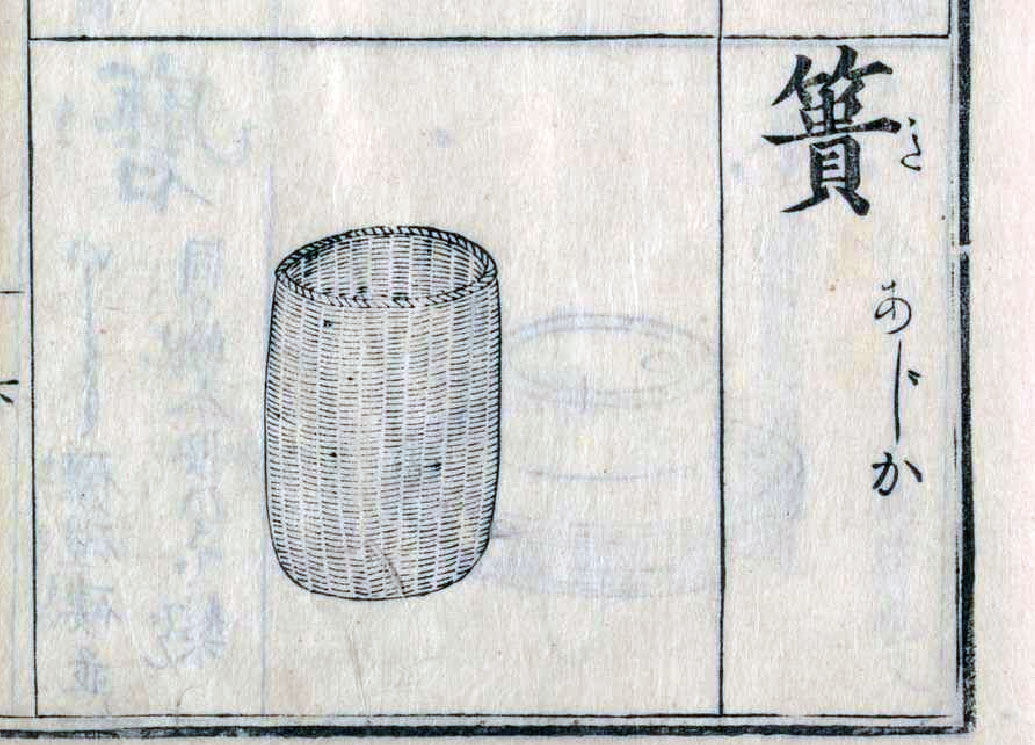 簣
き
あじか